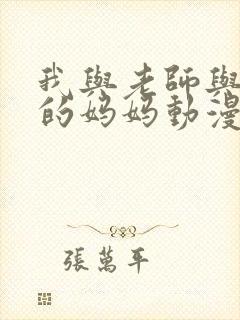 我與老師與
的妈妈動漫
張萬年